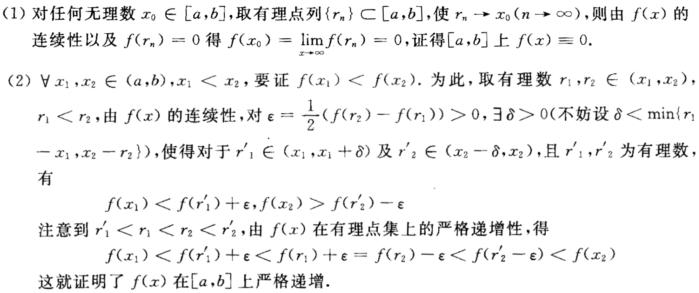 (1) 对任何无理数 x₀ ∈ [a,b],取有理点列{rₙ} ⊂ [a,b],使 rₙ → x₀(n → ∞),则由 f(x) 的
连续性以及 f(rₙ) = 0 得 f(x₀) = lim_{x→∞} f(rₙ) = 0,证得[a,b] 上 f(x) ≡ 0.
(2) ∀ x₁,x₂ ∈ (a,b),x₁ < x₂,要证 f(x₁) < f(x₂). 为此,取有理数 r₁,r₂ ∈ (x₁,x₂),
r₁ < r₂,由 f(x) 的连续性,对 ε = 1/2(f(r₂) − f(r₁)) > 0,∃ δ > 0(不妨设 δ < min{r₁
− x₁,x₂ − r₂}),使得对于 r′₁ ∈ (x₁,x₁ + δ) 及 r′₂ ∈ (x₂ − δ,x₂),且 r′₁,r′₂ 为有理数,
有
f(x₁) < f(r′₁) + ε,f(x₂) > f(r′₂) − ε
注意到 r′₁ < r₁ < r₂ < r′₂,由 f(x) 在有理点集上的严格递增性,得
f(x₁) < f(r′₁) + ε < f(r₁) + ε = f(r₂) − ε < f(r′₂ − ε) < f(x₂)
这就证明了 f(x) 在[a,b] 上严格递增.